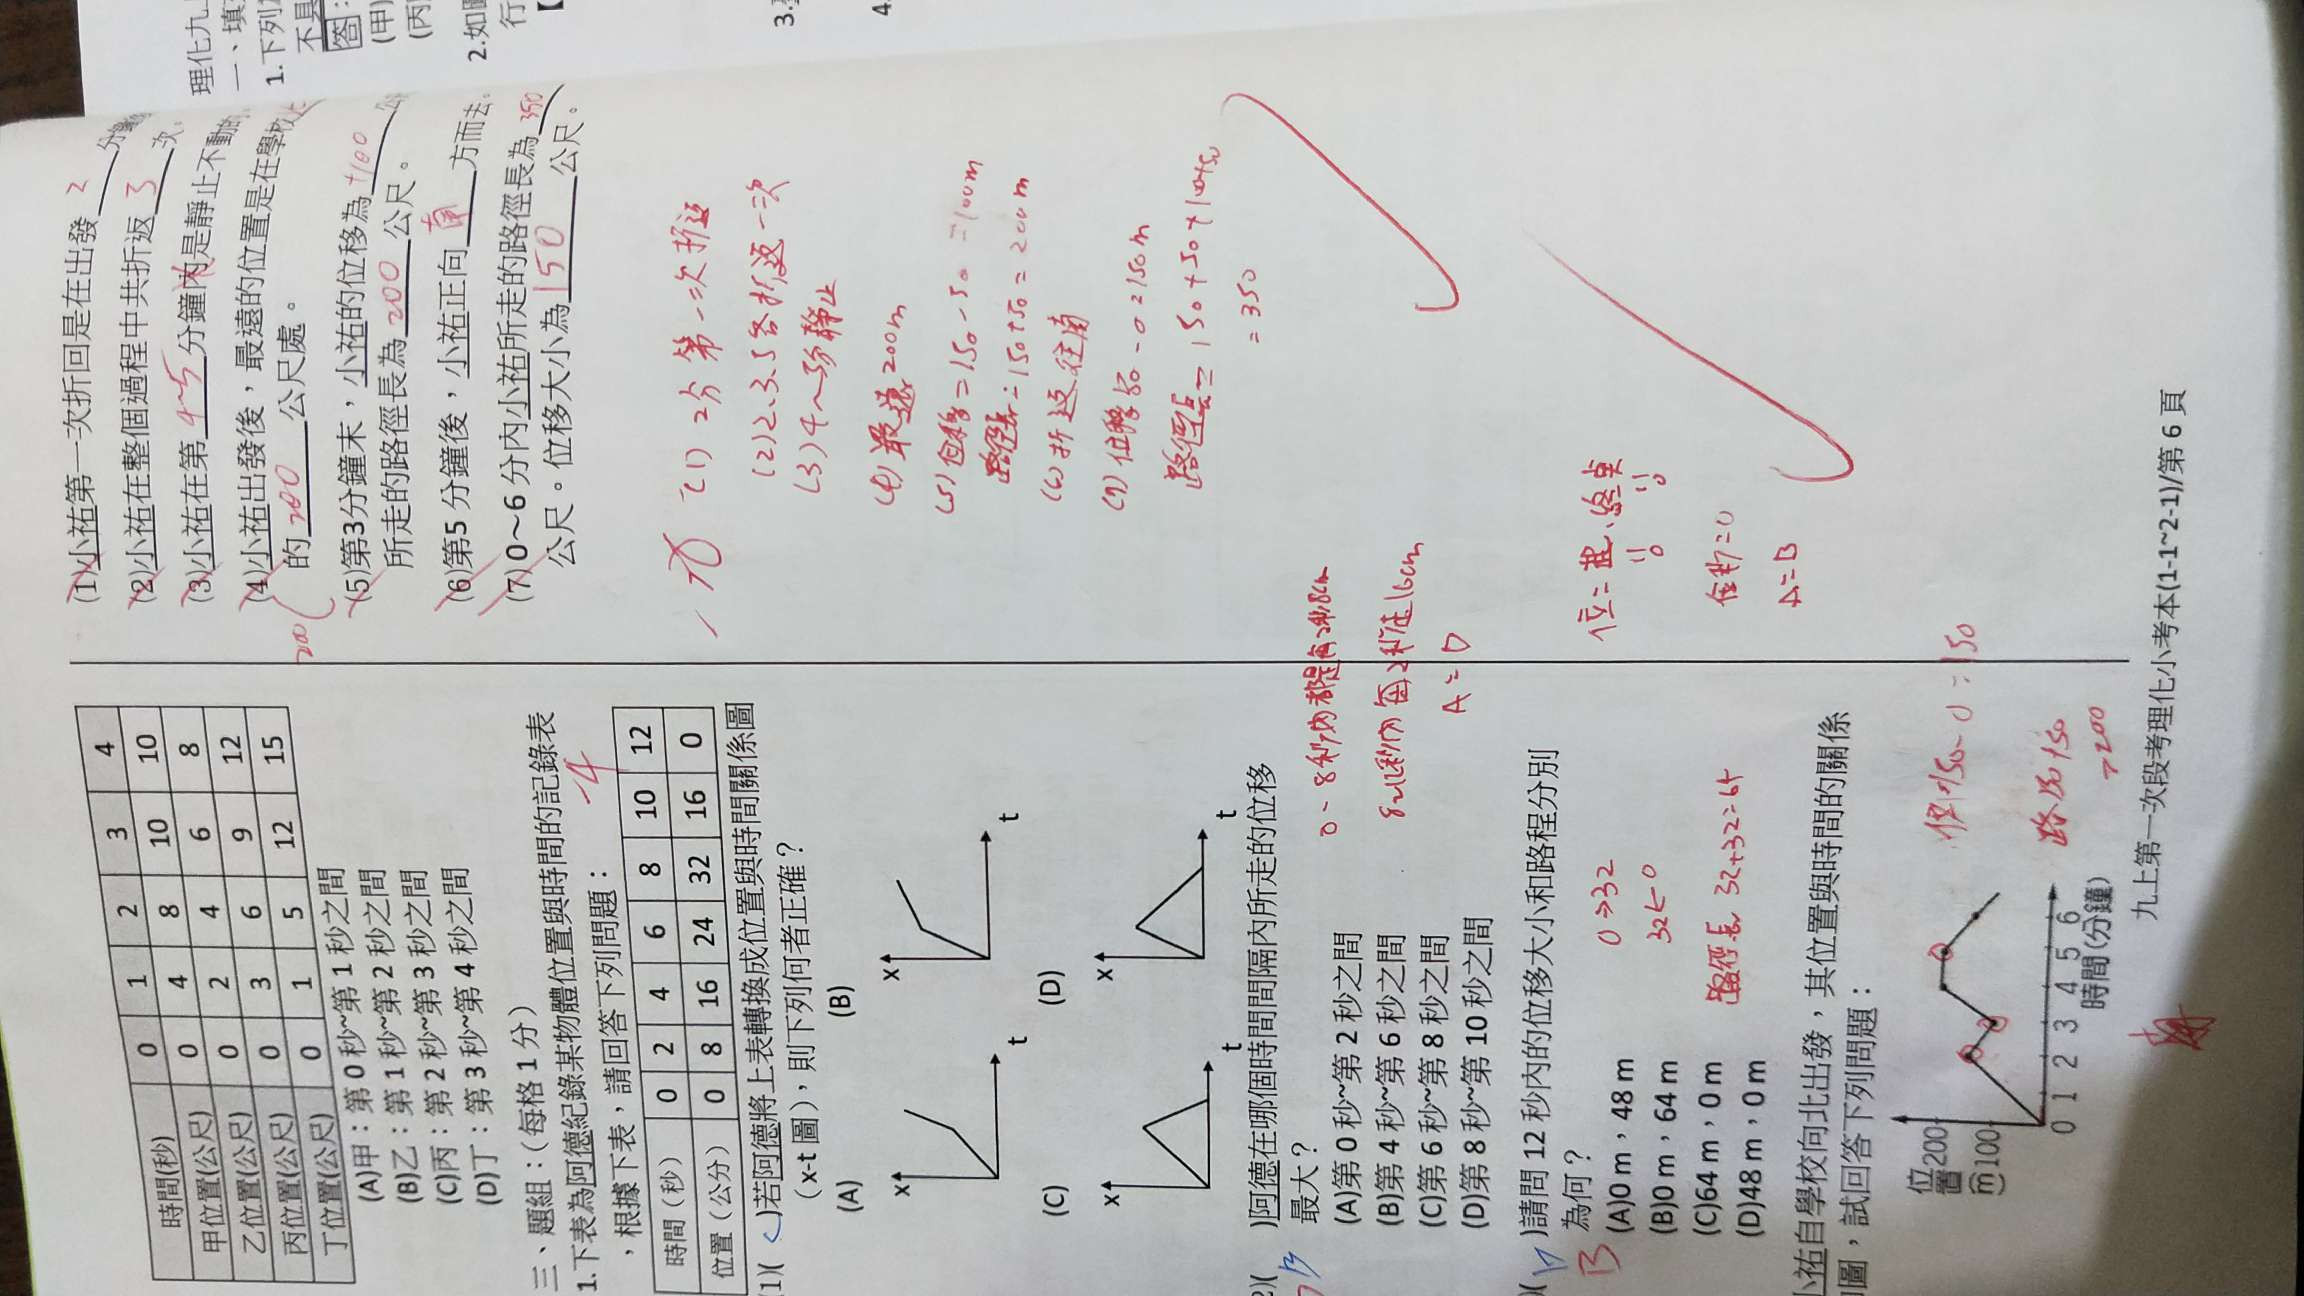 時間(秒) 0 1 2 3 4
甲位置(公尺) 0 4 8 10 10
乙位置(公尺) 0 2 4 6 8
丙位置(公尺) 0 3 6 9 12
丁位置(公尺) 0 1 5 12 15
(A)甲：第 0 秒~第 1 秒之間
(B)乙：第 1 秒~第 2 秒之間
(C)丙：第 2 秒~第 3 秒之間
(D)丁：第 3 秒~第 4 秒之間
三、題組：(每格 1 分)
-4
1.下表為阿德紀錄某物體位置與時間的記錄表
，根據下表，請回答下列問題：
時間（秒） 0 2 4 6 8 10 12
位置（公分） 0 8 16 24 32 16 0
1)( C )若阿德將上表轉換成位置與時間關係圖
（x-t 圖），則下列何者正確？
(A) (B)
x t x t
(C) (D)
x t x t
2)( B )阿德在哪個時間間隔內所走的位移
D
最大？
(A)第 0 秒~第 2 秒之間
(B)第 4 秒~第 6 秒之間
(C)第 6 秒~第 8 秒之間
(D)第 8 秒~第 10 秒之間
0~8秒內都是每2秒8cm
8~12秒內每2秒往16cm
A=D
)( A )請問 12 秒內的位移大小和路程分別
B
為何？
(A)0 m，48 m
(B)0 m，64 m
(C)64 m，0 m
(D)48 m，0 m
0→32
32←0
路徑長 32+32=64
位=起、終點
0 0
位移=0
A=B
小祐自學校向北出發，其位置與時間的關係
圖，試回答下列問題：
位置(m) 200 100
0 1 2 3 4 5 6
時間(分鐘)
位移150-0=150
路150+50
=200
南
(1)小祐第一次折回是在出發 2 分鐘
(2)小祐在整個過程中共折返 3 次。
(3)小祐在第 4~5 分鐘內是靜止不動的
(4)小祐出發後，最遠的位置是在學校北
的 200 公尺處。
200
(5)第3分鐘末，小祐的位移為 +100 公
所走的路徑長為 200 公尺。
(6)第5 分鐘後，小祐正向 南 方而去。
(7)0～6 分內小祐所走的路徑長為 350
公尺。位移大小為 150 公尺。
(1) 2分第一次折返
(2) 2、3、5各折返一次
(3) 4～5分靜止
(4) 最遠200m
(5) 位移=150-50=100m
路徑長=150+50=200m
(6) 折返往南
(7) 位移
路徑長=150+50+100+50
=350
九上第一次段考理化小考本(1-1~2-1)/第 6 頁
理化九上
一、填
1.下列
不具
答：
(甲)
(丙
2.如圖
行
【
3.
4.